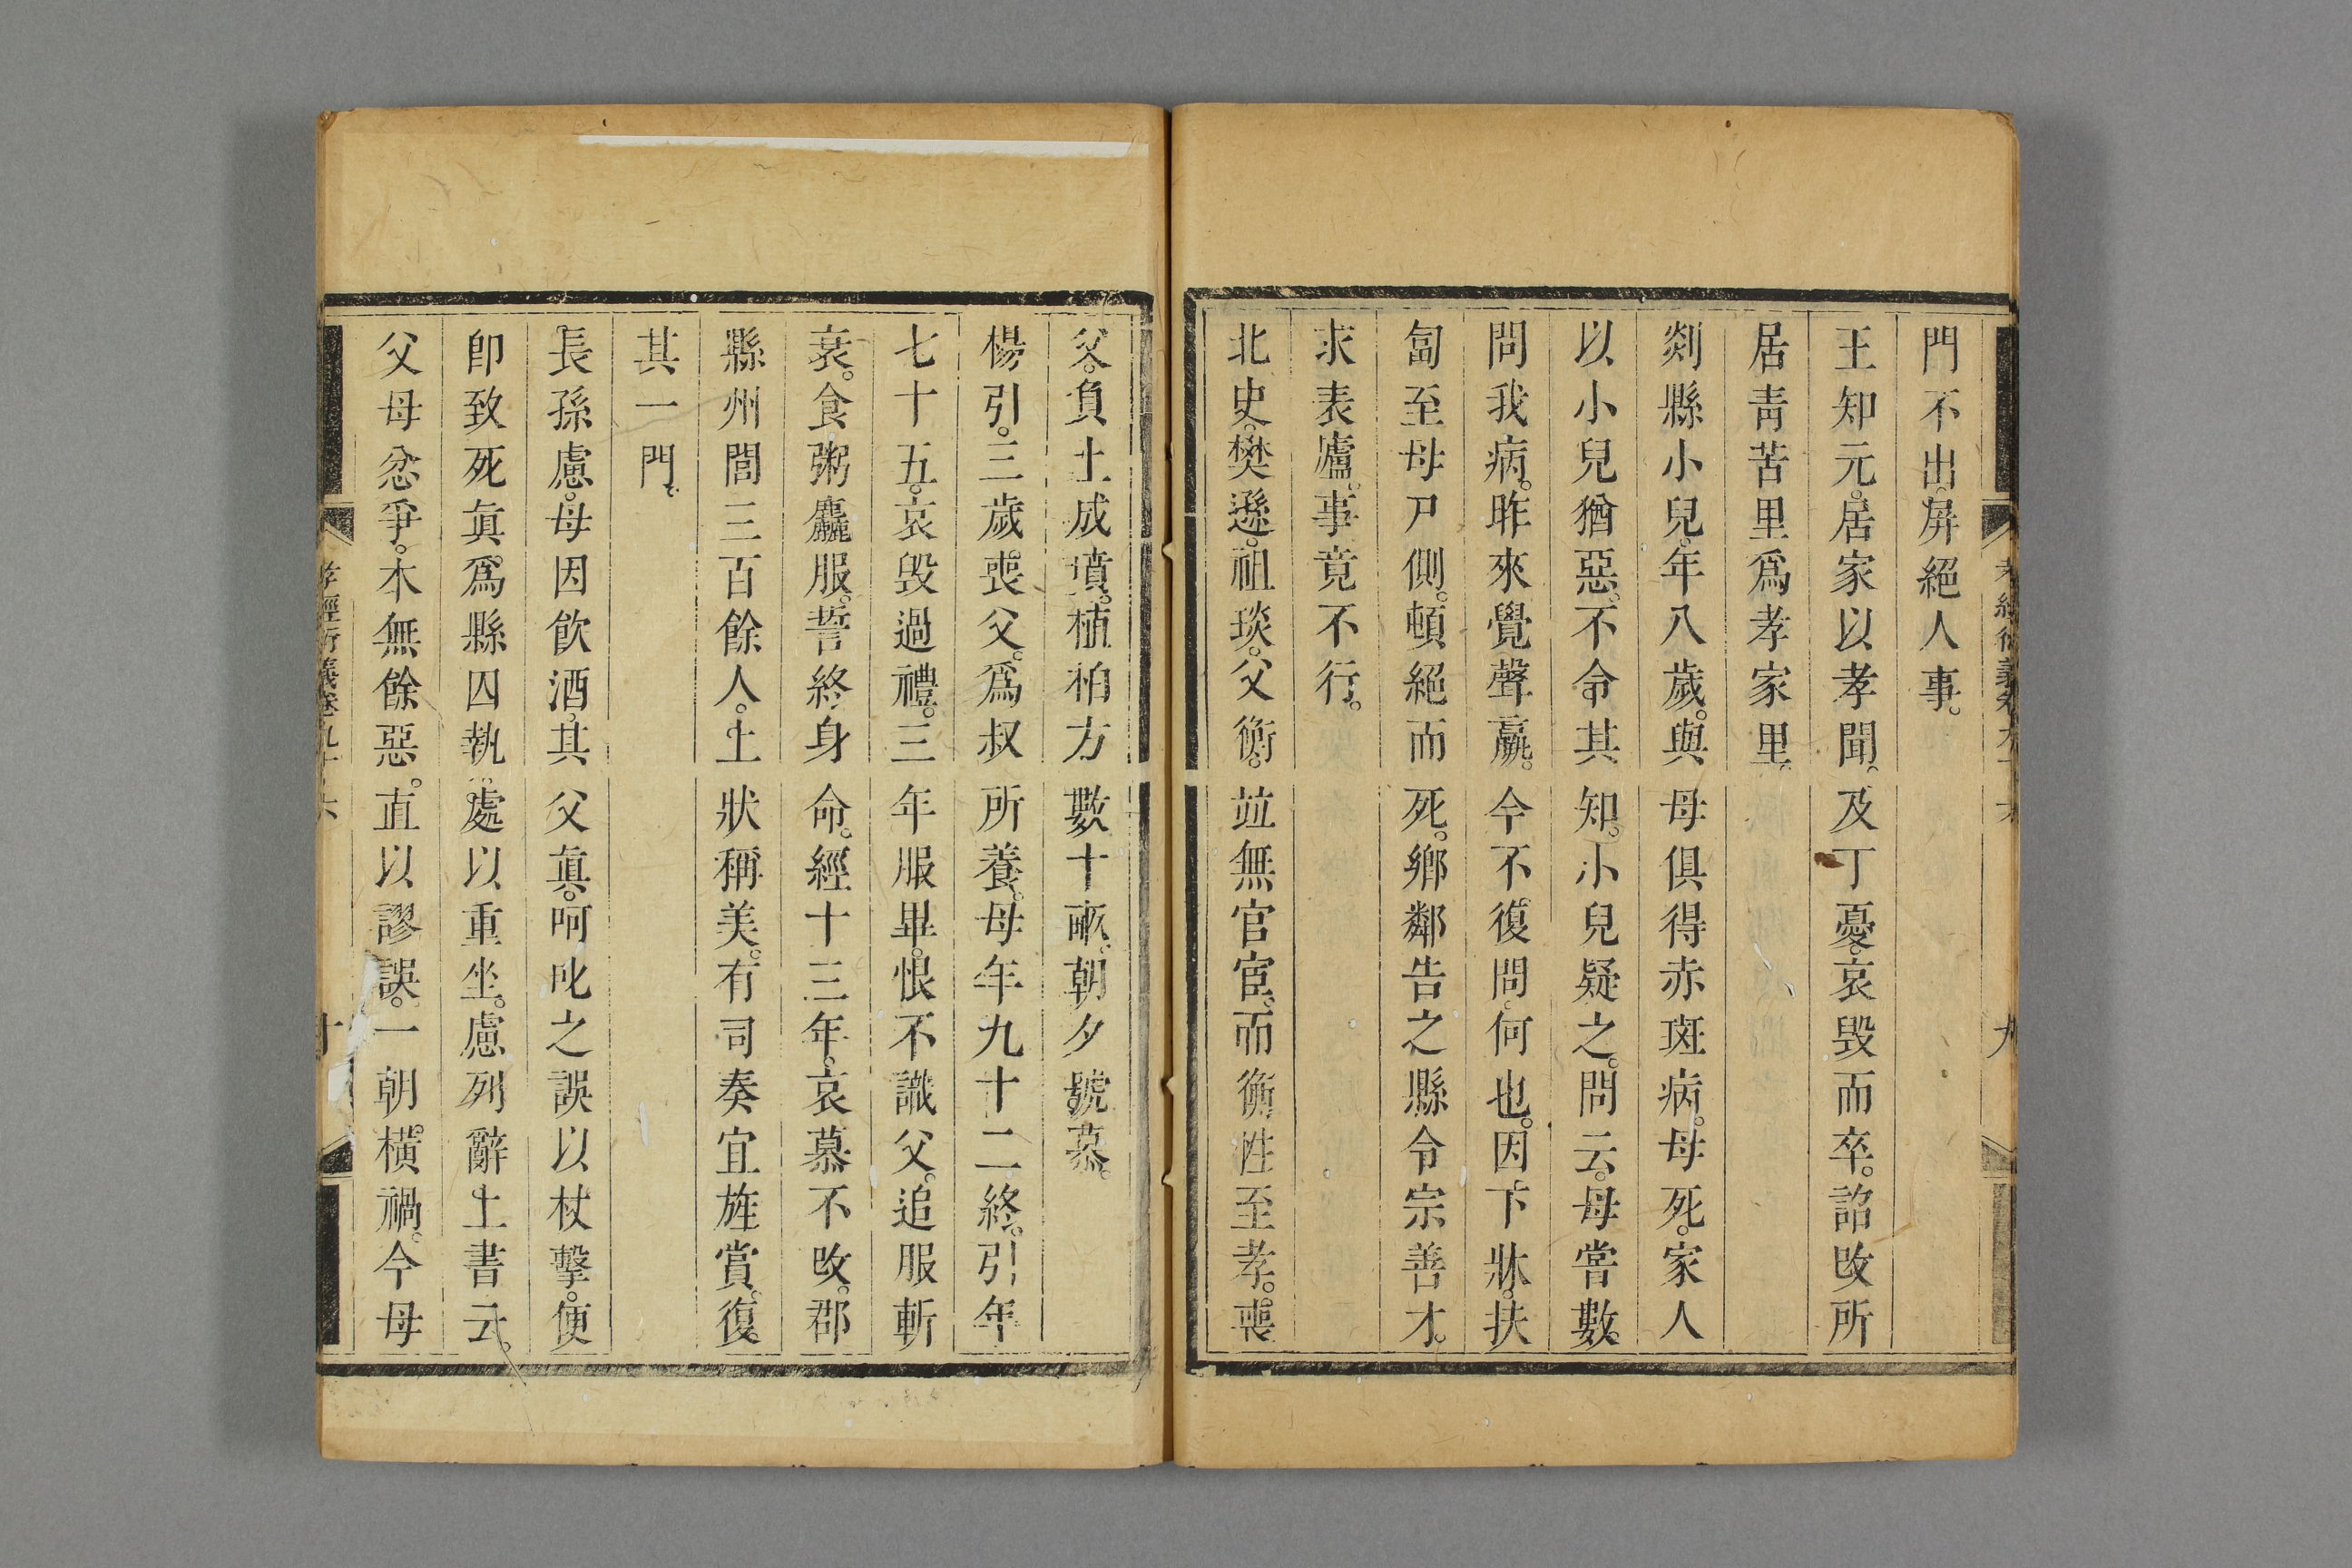 門不出。屏絕人事。
王知元。居家以孝聞。及丁憂。哀毁而卒。詔改所
居靑苦里爲孝家里。
剡縣小兒。年八歲。與母俱得赤斑病。母死。家人
以小兒猶惡。不令其知。小兒疑之。問云。母嘗數
問我病。昨來覺聲羸。今不復問。何也。因下牀。扶
匐至母尸側。頓絕而死。鄉鄰告之縣令宗善才。
求表廬。事竟不行。
北史。樊遜。祖琰。父衡。竝無官宦。而衡性至孝。喪
父。負土成墳。植柏方數十畝。朝夕號慕。
楊引。三歲喪父。爲叔所養。母年九十二終。引年
七十五。哀毁過禮。三年服畢。恨不識父。追服斬
衰。食粥麤服。誓終身命。經十三年。哀慕不改。郡
縣州閭三百餘人。上狀稱美。有司奏宜旌賞。復
其一門。
長孫慮。母因飮酒。其父眞。呵叱之。誤以杖擊。便
卽致死。眞爲縣囚執。處以重坐。慮列辭上書云。
父母忿爭。本無餘惡。直以謬誤。一朝橫禍。今母
孝經衍義卷九十六
十